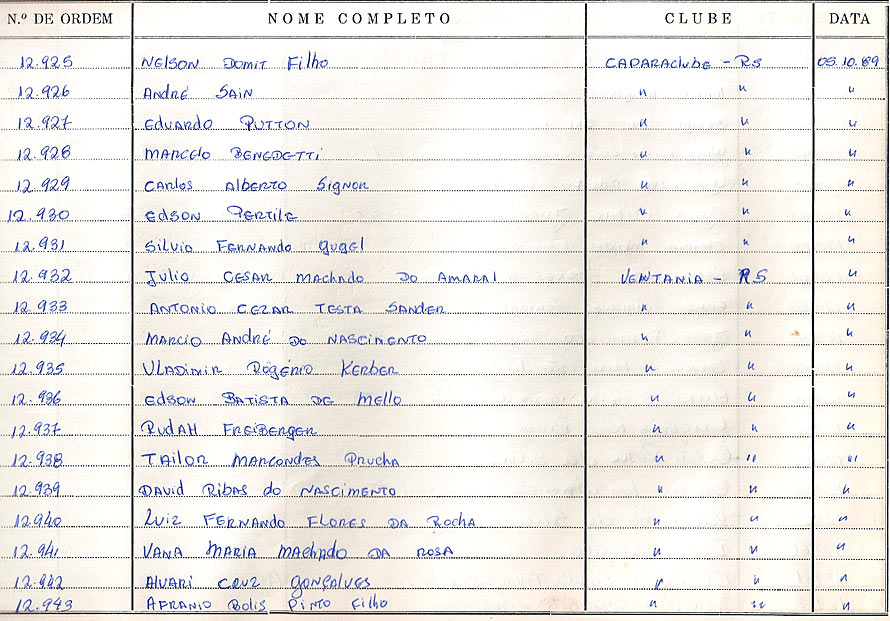 N.º DE ORDEM NOME COMPLETO CLUBE DATA
12.925 NELSON DOMIT Filho CAPARAclube - RS 05.10.89
12.926 ANDRÉ SAIN " " "
12.927 EDUARDO PUTTON " " "
12.928 MARCELO BENEDETTI " " "
12.929 CARLOS ALBERTO SIGNOR " " "
12.930 EDSON PERTILE " " "
12.931 SILVIO FERNANDO GUGEL " " "
12.932 JULIO CESAR MACHADO DO AMARAL VENTANIA - RS "
12.933 ANTONIO CEZAR TESTA SANDER " " "
12.934 MARCIO ANDRÉ DO NASCIMENTO " " "
12.935 VLADIMIR ROGÉRIO KERBER " " "
12.936 EDSON BATISTA DE MELLO " " "
12.937 RUDAH FREIBERGER " " "
12.938 TAILOR MARCONDES PRUCHA " " "
12.939 DAVID RIBAS do NASCIMENTO " " "
12.940 LUIZ FERNANDO FLORES DA ROCHA " " "
12.941 VANA MARIA MACHADO DA ROSA " " "
12.942 ALVARI CRUZ GONÇALVES " " "
12.943 AFRANIO BOLIS PINTO Filho " " "